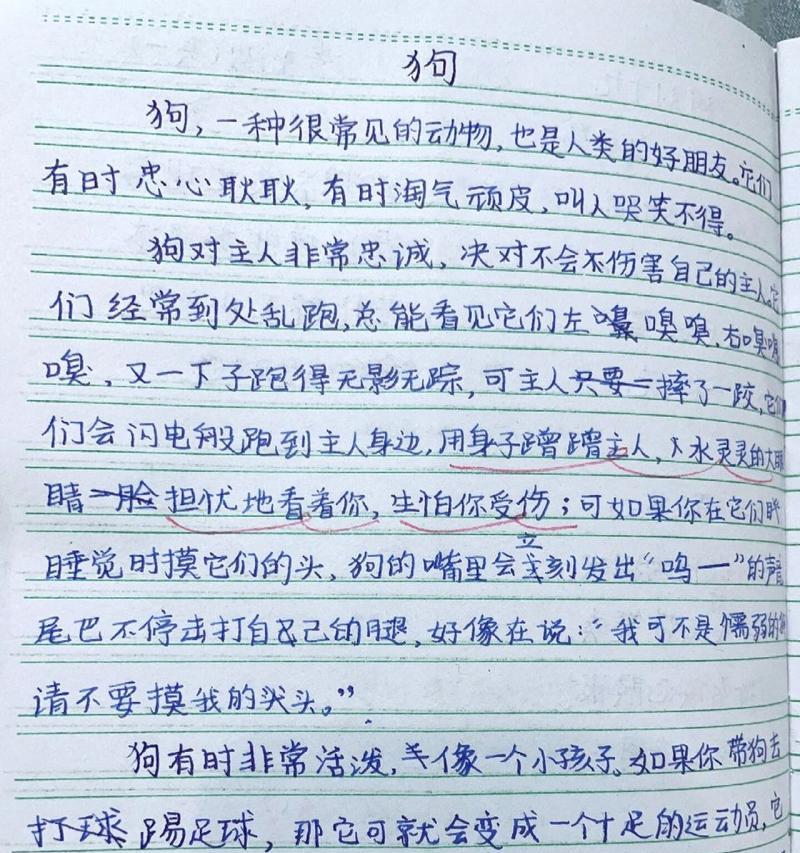 狗
狗，一种很常见的动物，也是人类的好朋友。它们
有时忠心耿耿，有时淘气顽皮，叫人哭笑不得。
狗对主人非常忠诚，决对不会伤害自己的主人。它
们经常到处乱跑，总能看见它们左嗅嗅，右嗅嗅
嗅，又一下子跑得无影无踪，可主人摔了一跤，它们
们会闪电般跑到主人身边，用身子蹭蹭主人，水灵灵的大眼
睛担忧地看着你，生怕你受伤；可如果你在它们
睡觉时摸它们的头，狗的嘴里会立刻发出“呜一”的声音
尾巴不停击打自己的腿，好像在说：“我可不是懦弱的
请不要摸我的头。”
狗有时非常活泼，像一个小孩子。如果你带狗去
打球踢足球，那它可就会变成一个十足的运动员，它